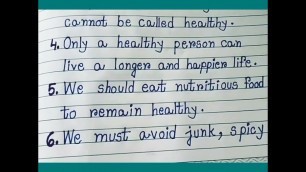 cannot be called healthy.
4. Only a healthy person can
live a longer and happier life.
5. We should eat nutritious food
to remain healthy.
6. We must avoid junk, spicy